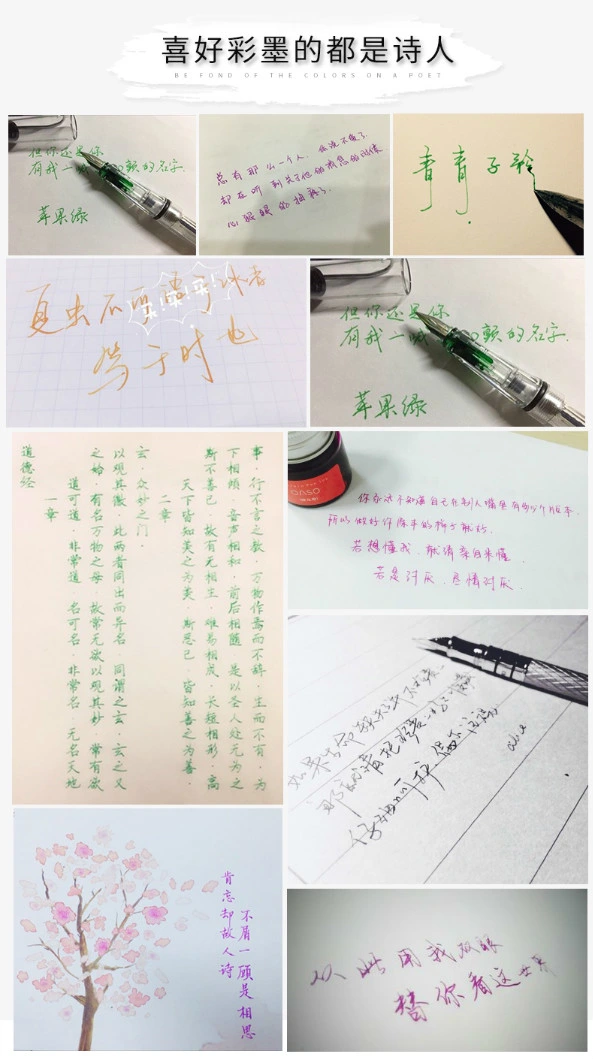 喜好彩墨的都是诗人
BE FOND OF THE COLORS ON A POET
但你还是你
有我一 的名字.
苹果绿
总有那么一个人.
却在听到关于他的消息的时候
心狠狠的抽痛了.
青青子衿
夏虫不可语于冰者
笃于时也
但你还是你
有我一 的名字.
苹果绿
道德经
一章
道可道.非常道.名可名.非常名.无名天地
之始.有名万物之母.故常无欲以观其妙.常有欲
以观其徼.此两者同出而异名.同谓之玄.玄之又
玄.众妙之门.
二章
天下皆知美之为美.斯恶已.皆知善之为善.
斯不善已.故有无相生.难易相成.长短相形.高
下相倾.音声相和.前后相随.是以圣人处无为之
事.行不言之教.万物作焉而不辞.生而不有.为
你永远不知道自己在别人嘴里有多少个版本.
所以做好你原来的样子就好.
若想懂我.就请亲自来懂.
若是讨厌.尽情讨厌.
肯忘却故人诗
不屑一顾是相思
从此用我双眼
替你看这世界